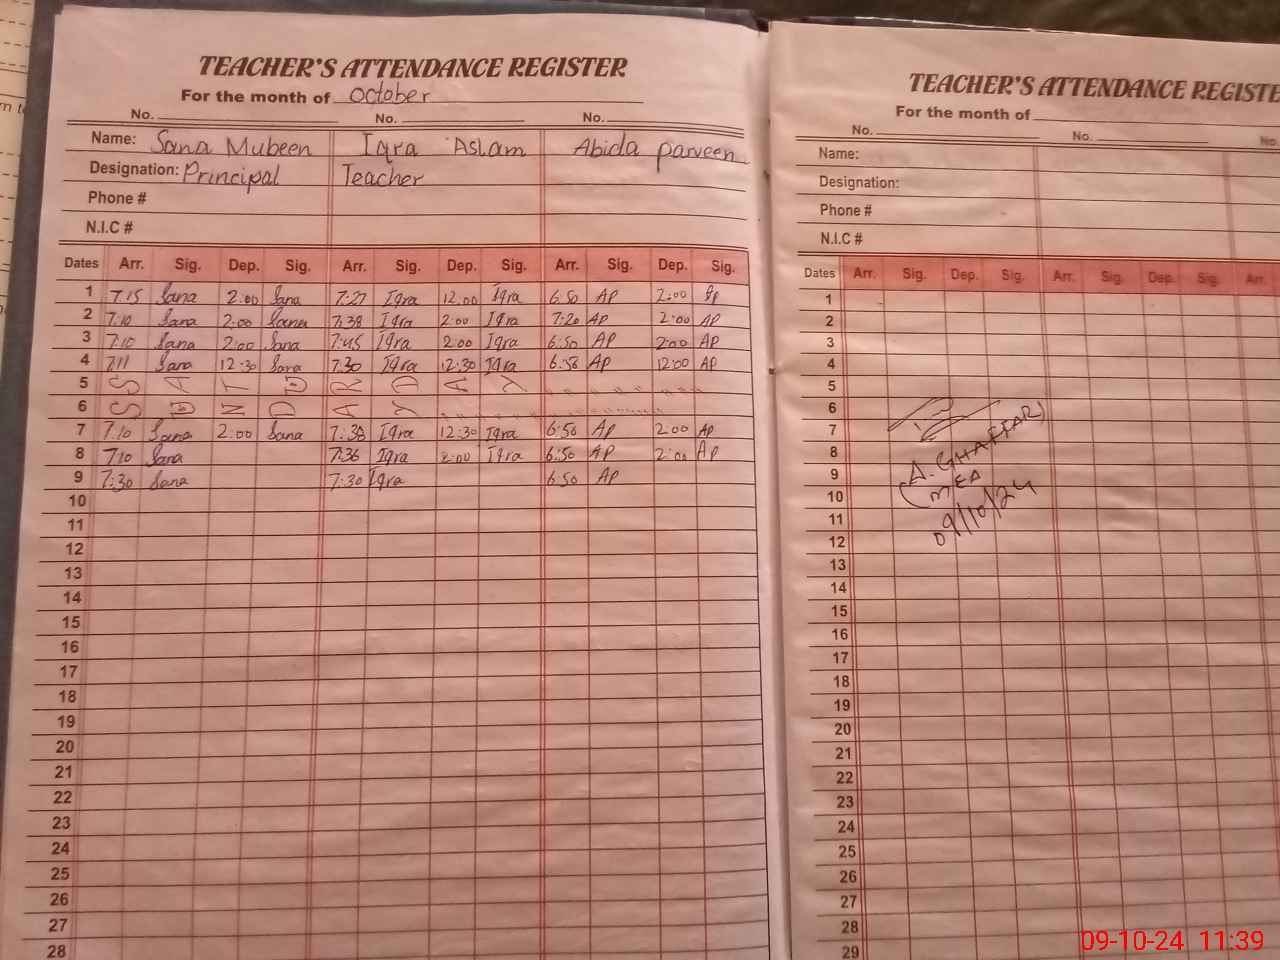 TEACHER'S ATTENDANCE REGISTER
For the month of October
No. No. No.
Name: Sana Mubeen Iqra Aslam Abida parveen
Designation: Principal Teacher
Phone #
N.I.C #
Dates Arr. Sig. Dep. Sig. Arr. Sig. Dep. Sig. Arr. Sig. Dep. Sig.
1 7.15 Sana 2:00 Sana 7:27 Iqra 12.00 Iqra 6:50 AP 2:00 AP
2 7:10 Sana 2:00 Sana 7:38 Iqra 2:00 Iqra 7:20 AP 2:00 AP
3 7:10 Sana 2:00 Sana 7:45 Iqra 2:00 Iqra 6:50 AP 2:00 AP
4 7:11 Sana 12:30 Sana 7:30 Iqra 12:30 Iqra 6:58 AP 12:00 AP
5 S A T U R D A Y
6 S U N D A Y
7 7.10 Sana 2:00 Sana 7:38 Iqra 12:30 Iqra 6:50 AP 2:00 AP
8 7:10 Sana 7:36 Iqra 2:00 Iqra 6:50 AP 2:00 AP
9 7:30 Sana 7:30 Iqra 6:50 AP
10
11
12
13
14
15
16
17
18
19
20
21
22
23
24
25
26
27
28
TEACHER'S ATTENDANCE REGISTE
For the month of
No. No. No.
Name:
Designation:
Phone #
N.I.C #
Dates Arr. Sig. Dep. Sig. Arr. Sig. Dep. Sig. Arr.
1
2
3
4
5
6
7
8
9
10
11
12
13
14
15
16
17
18
19
20
21
22
23
24
25
26
27
28
29
(A. GHAFFAR)
MEA
09/10/24
09-10-24 11:39